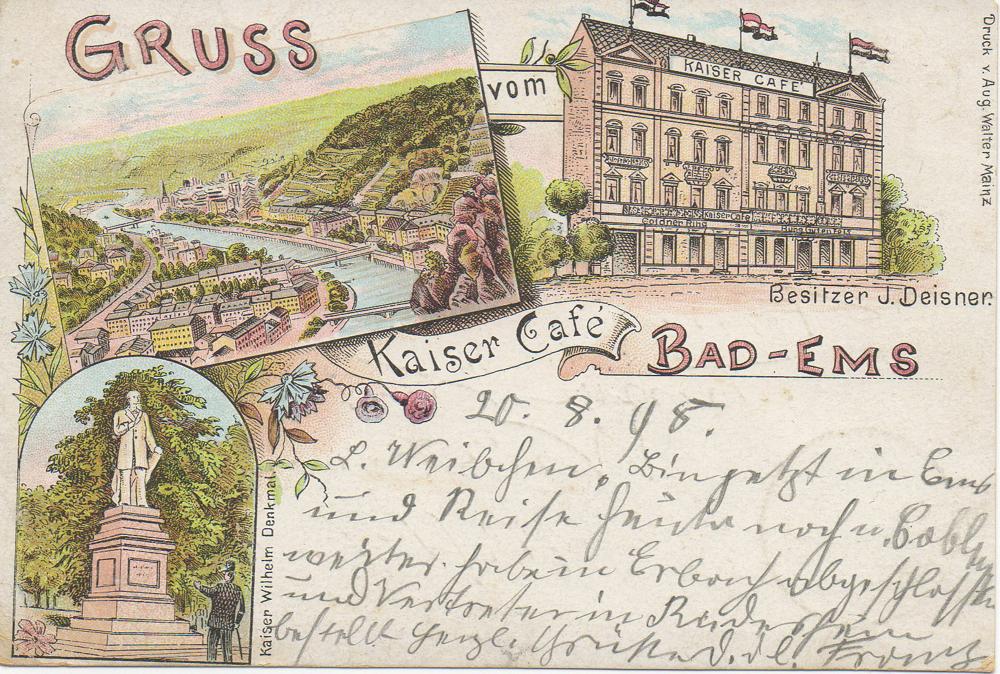 GRUSS
vom
KAISER CAFÉ
Kaiser Café
Druck v. Aug. Walter Mainz
Besitzer J. Deisner.
Kaiser Café
BAD-EMS
Kaiser Wilhelm Denkmal.
20. 8. 98.
L. Weibchen, Bin jetzt in Ems
und Reise heute noch n. Coblenz
weiter. habe in Erbach abgeschlossen
und Vertreter in Rüdesheim
bestellt Herzl. Grüße D. dl. Franz